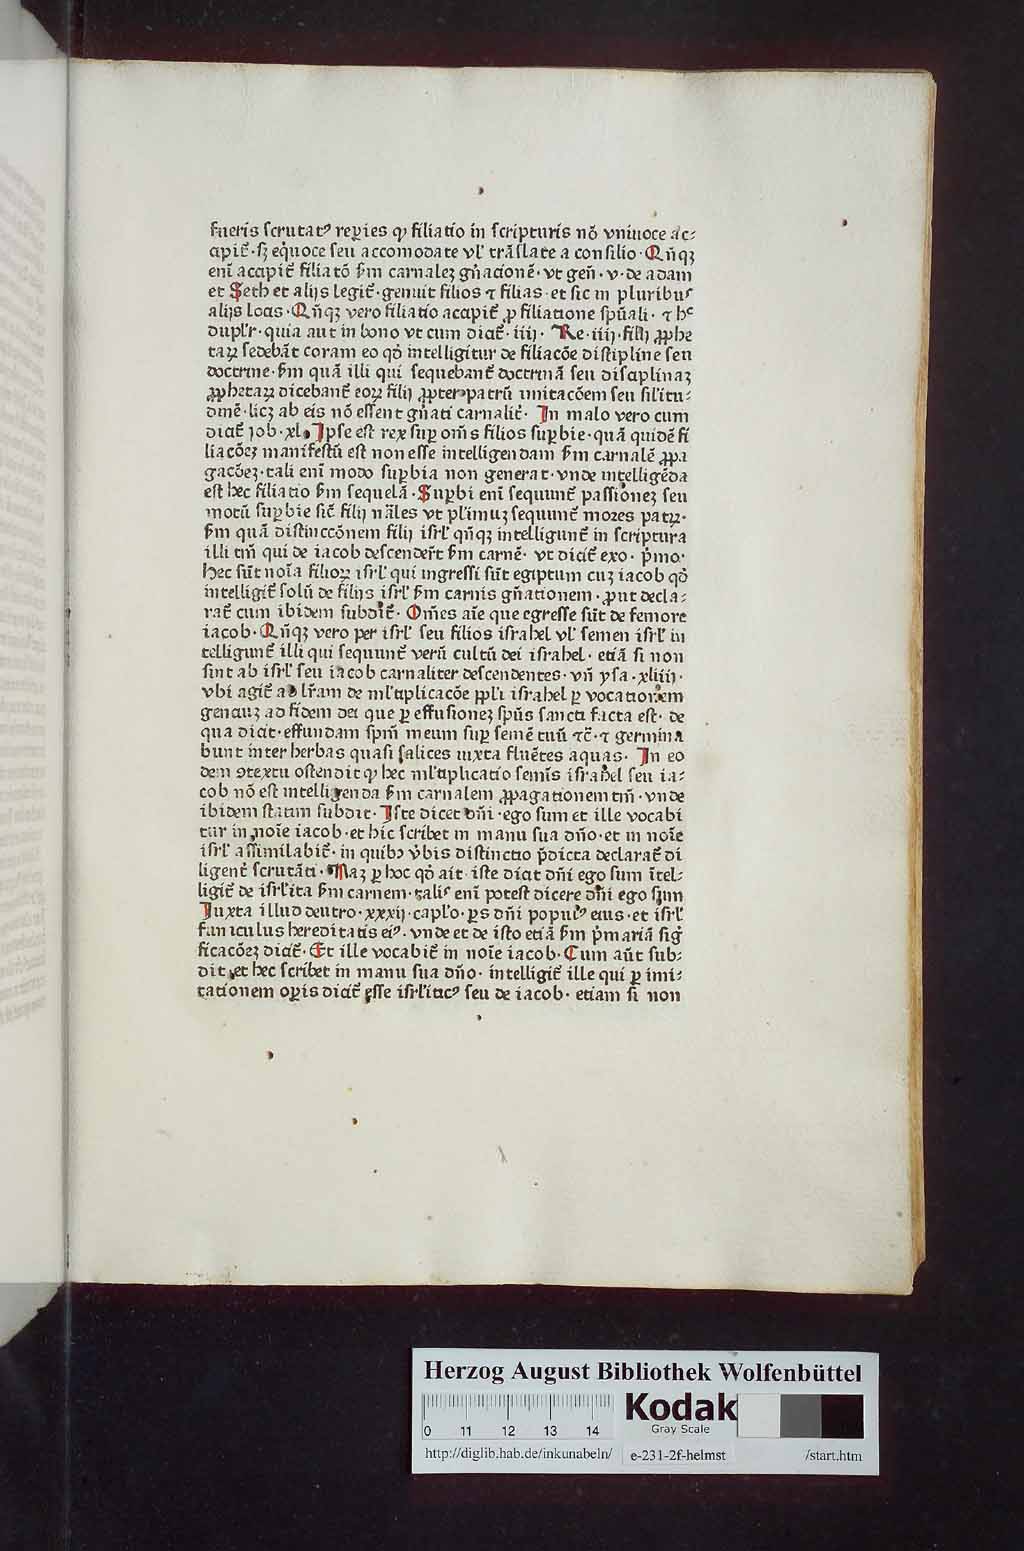 fueris scrutatꝰ repies ꝙ filiatio in scripturis nō vniuoce ac⸗
cipit̄·sꝫ eq̇uoce seu accomodate vl' trāslate a consilio·Qn̄qꝫ
eni accipit̄ filiatō ẜm carnalez gn̄acionē·vt gen̄·v·de adam
et Seth et alijs legit̄·genuit filios ⁊ filias·et sic in pluribus
alijs locis·Qn̄qꝫ vero filiatio accipit̄ ꝓ filiatione spūali·⁊ hᶜ
dupl'r·quia aut in bono vt cum dicit̄·iiij·Re·iiij·filij ꝓphe
taꝝ sedebāt coram eo qd' intelligitur de filiacōe discipline seu
doctrine·ẜm quā illi qui sequebant̄ doctrinā seu disciplinaz
ꝓphetaꝝ dicebant̄ eoꝝ filij ꝓpter patrū imitacōem seu sil'itu⸗
dinē·licꝫ ab eis nō essent gn̄ati carnalit̄·In malo vero cum
dicit̄ iob·xl·Ipse est rex sup om̄s filios supbie·quā quidē fi
liacōez manifestū est non esse intelligendam ẜm carnalē ꝓpa
gacōez·tali enī modo supbia non generat·vnde intelligēda
est hec filiatio ẜm sequelā·Supbi enī sequunt̄ passionez seu
motū supbie sic̄ filij nāles vt pl'imuz sequunt̄ mores patꝝ·
ẜm quā distinccōnem filij isrl' qn̄qꝫ intelligunt̄ in scriptura
illi tm̄ qui de iacob descender̄t ẜm carnē·vt dicit̄ exo·p̄mo·
Hec sūt noīa filioꝝ isrl' qui ingressi sūt egiptum cuz iacob qd'
intelligit̄ solū de filijs isrl' ẜm carnis gn̄ationem·ꝓut decla⸗
rat̄ cum ibidem subdit̄·Om̄es aīe que egresse sūt de femore
iacob·Qn̄qꝫ vero per isrl' seu filios israhel vl' semen isrl' in
telligunt̄ illi qui sequunt̄ verū cultū dei israhel·etiā si non
sint ab isrl' seu iacob carnaliter descendentes·vn̄ ysa·xliiij·
vbi agit̄ ad lr̄am de ml'tiplicacōe ppl'i israhel ꝑ vocationem
gencium ad fidem dei que ꝑ effusionez spūs sancti facta est·de
qua dicit·effundam spm̄ meum sup semē tuū ⁊c̄·⁊ germina
bunt inter herbas quasi salices iuxta fluētes aquas·In eo
dem ꝯtextu ostendit ꝙ hec ml'tiplicatio semīs israhel seu ia⸗
cob nō est intelligenda ẜm carnalem ꝓpagationem tm̄·vnde
ibidem statim subdit·Iste dicet dn̄i·ego sum et ille vocabi
tur in noīe iacob·et hic scribet in manu sua dn̄o·et in noīe
isrl' assimilabit̄·in quibꝫ v̄bis distinctio p̄dicta declarat̄ di
ligent̄ scrutāti·Naz ꝑ hoc qd' ait iste dicit dn̄i ego sum ītel⸗
ligit̄ de isrl'ita ẜm carnem·talis enī potest dicere dn̄i ego sum
Iuxta illud deutro·xxxij·capl'o·ꝑs dn̄i populꝰ eius·et isrl'
funiculus hereditatis eiꝰ·vnde et de isto etiā ẜm p̄mariā sig
ficacōez dicit̄·Et ille vocabit̄ in noīe iacob·Cum aūt sub⸗
dit et hec scribet in manu sua dn̄o·intelligit̄ ille qui ꝑ imi⸗
tationem oꝑis dicit̄ esse isrl'iticꝰ seu de iacob·etiam si non
Herzog August Bibliothek Wolfenbüttel
0 11 12 13 14
Kodak
Gray Scale
http://diglib.hab.de/inkunabeln/ e-231-2f-helmst /start.htm